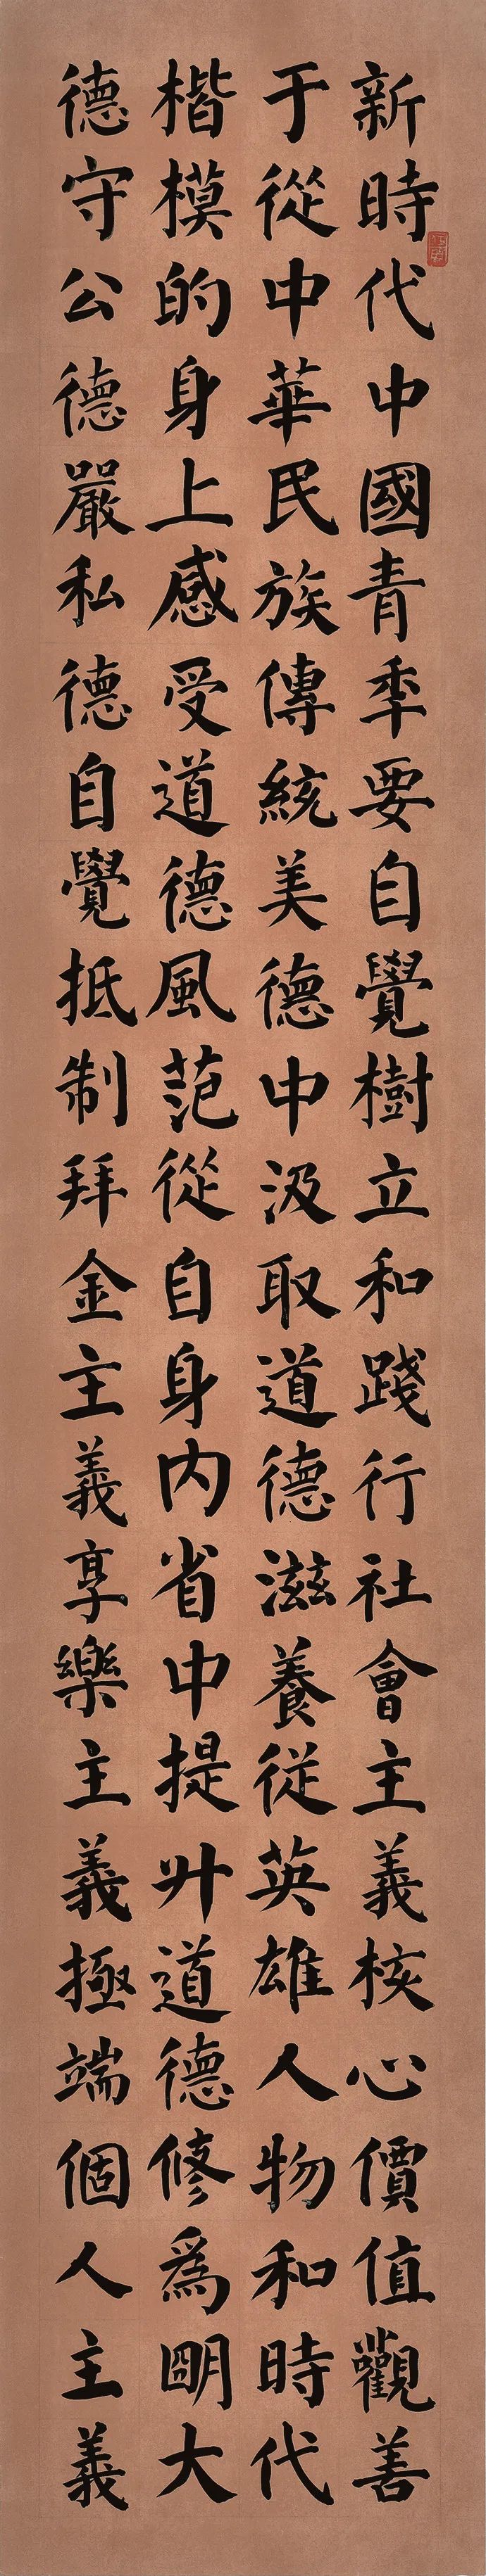 新時代中國青年要自覺樹立和踐行社會主義核心價值觀善
于從中華民族傳統美德中汲取道德滋養從英雄人物和時代
楷模的身上感受道德風范從自身內省中提升道德修為明大
德守公德嚴私德自覺抵制拜金主義享樂主義極端個人主義